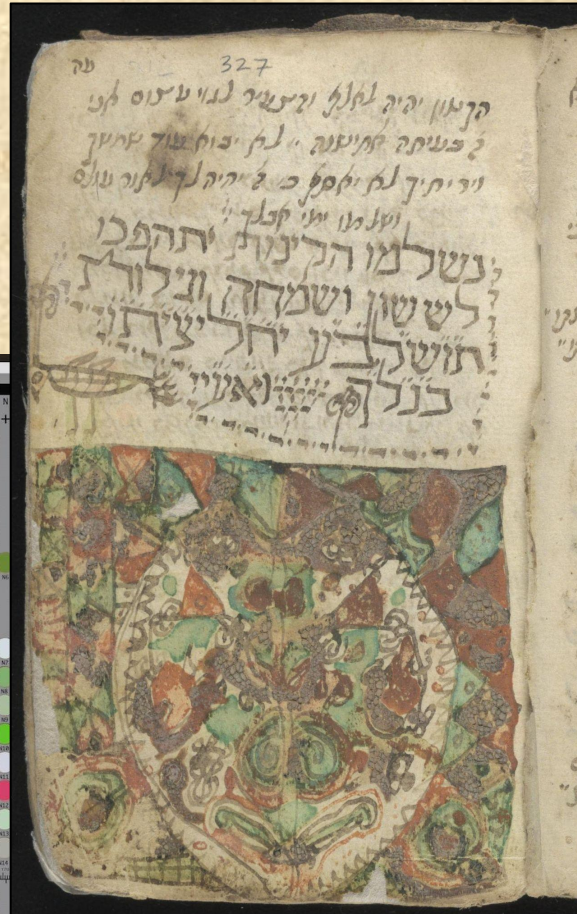 מה 327
הקטון יהיה לאלף והצעיר לגוי עצום אני
בעיתה אחישנה לא יבוא עוד שמשך
וירחיך לא יאסף כי יהיה לך לאור עולם
ושלמו ימי אבלך
נשלמו הקינות יתהפכו
לששון ושמחה
תושלבע